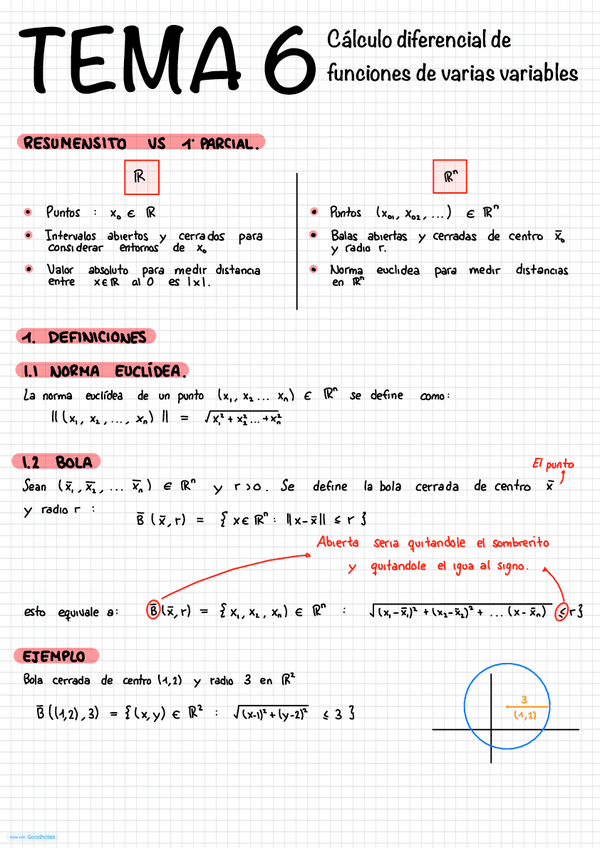 TEMA 6
Cálculo diferencial de
funciones de varias variables
RESUMENSITO VS 1º PARCIAL.
ℝ
• Puntos : x₀ ∈ ℝ
• Intervalos abiertos y cerrados para
considerar entornos de x₀
• Valor absoluto para medir distancia
entre x∈ℝ al 0 es |x|.
ℝⁿ
• Puntos (x₀₁, x₀₂, ...) ∈ ℝⁿ
• Balas abiertas y cerradas de centro x̄₀
y radio r.
• Norma euclidea para medir distancias
en ℝⁿ
1. DEFINICIONES
1.1 NORMA EUCLÍDEA.
La norma euclídea de un punto (x₁, x₂ ... xₙ) ∈ ℝⁿ se define como:
||(x₁, x₂, ..., xₙ)|| = √x₁² + x₂² ... + xₙ²
1.2 BOLA
El punto
Sean (x̄₁, x̄₂, ... x̄ₙ) ∈ ℝⁿ y r>0. Se define la bola cerrada de centro x̄
y radio r :
B̄ (x̄, r) = { x∈ℝⁿ : ||x-x̄|| ≤ r }
Abierta seria quitandole el sombrerito
y quitandole el igua al signo.
esto equivale a: B̄(x̄, r) = { x₁, x₂, xₙ) ∈ ℝⁿ : √(x₁-x̄₁)² + (x₂-x̄₂)² + ... (x-x̄ₙ) ≤ r}
EJEMPLO
Bola cerrada de centro (1,2) y radio 3 en ℝ²
B̄((1,2), 3) = {(x,y) ∈ ℝ² : √(x-1)² + (y-2)² ≤ 3 }
3
(1,2)
Made with Goodnotes